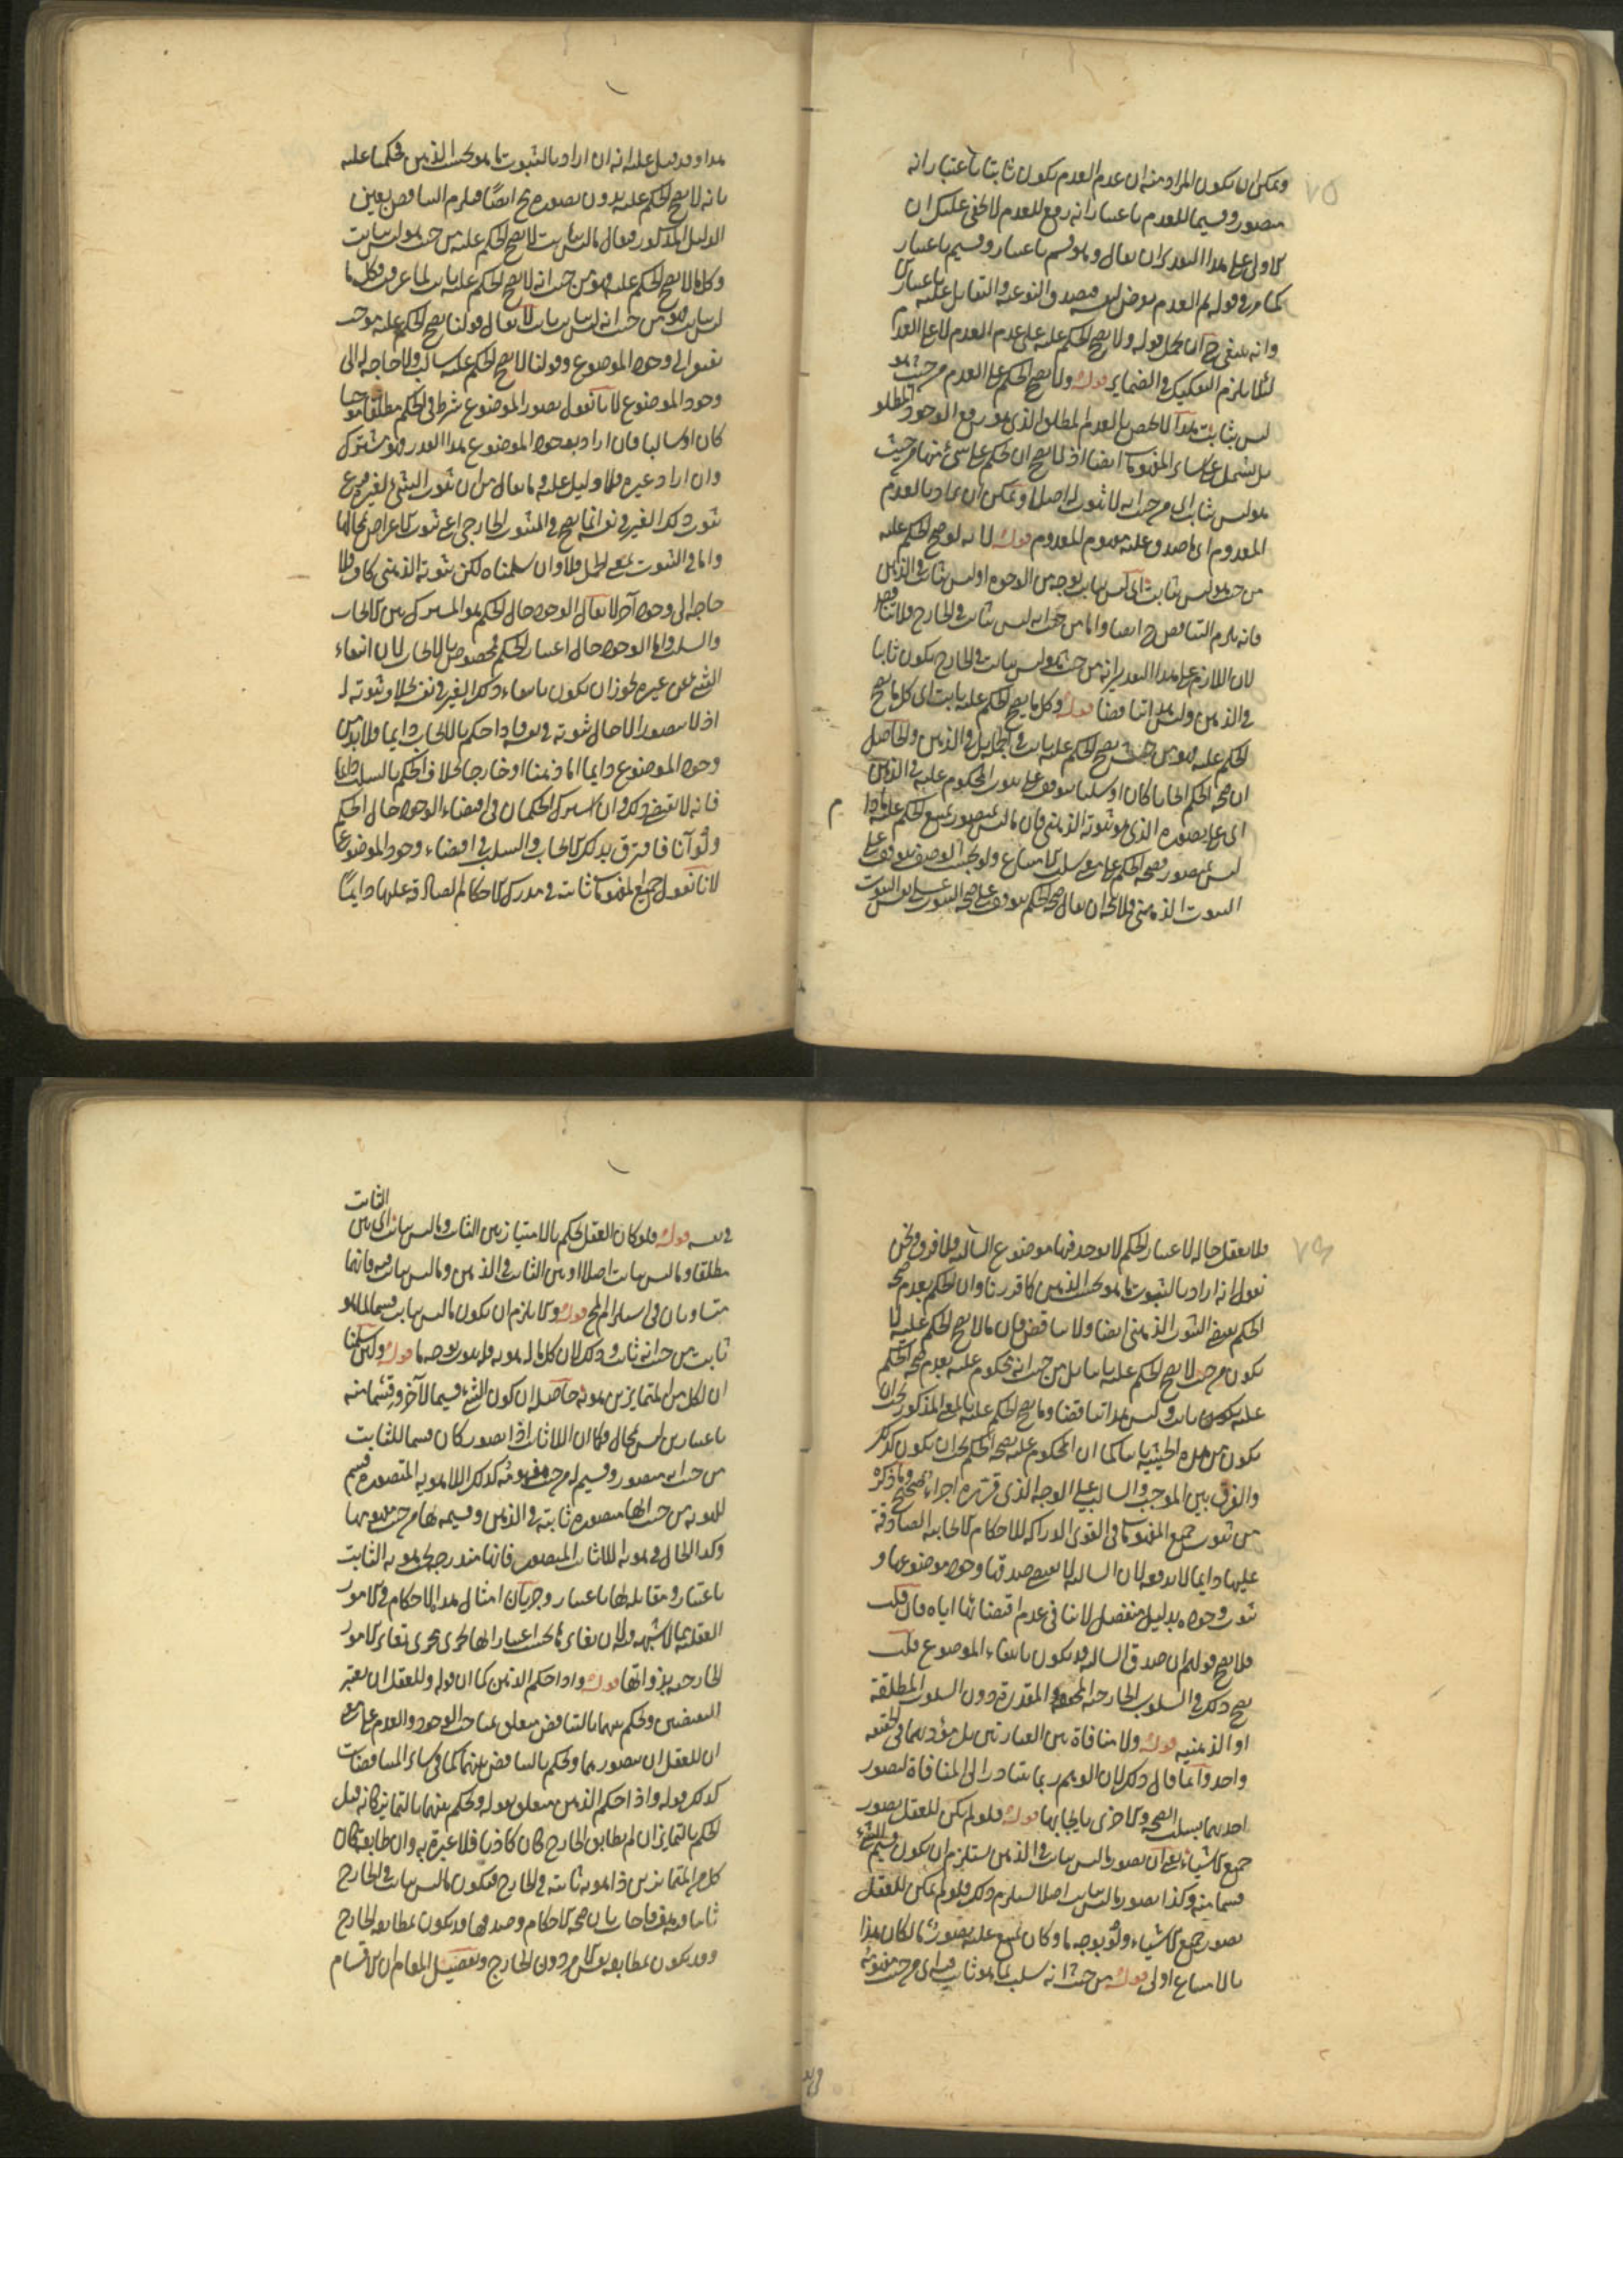 ٧٥
ويمكن ان يكون المراد منه ان عدم العدم يكون ثابتا باعتبار انه
متصور وقسيما للعدم باعتبار انه رفع للعدم لا يخفى عليك ان
الاولى على هذا التقدير ان يقال وهو قسم باعتبار وقسيم باعتبار
كما مر وقوله ثم العدم يعرض لنفسه فيصدق النوعية والتقابل عليه باعتبارين
وانه ينبغي ح ان يحمل قوله ولا يصح الحكم عليه على عدم العدم لا على العدم
لئلا يلزم التفكيك في الضماير قوله ولا يصح الحكم على العدم من حيث هو
ليس بثابت هذا لا يختص بالعدم المطلق الذي هو رفع الوجود المطلق
بل يشمل على ساير المفهومات ايضا اذ لا يصح ان يحكم على شيء منها من حيث
هو ليس بثابت اي من حيث انه لا ثبوت له اصلا ويمكن ان يراد بالعدم
المعدوم اي ما صدق عليه مفهوم المعدوم قوله لانه لو صح الحكم عليه
من حيث هو ليس بثابت اي ليس بثابت بوجه من الوجوه او ليس بثابت في الذهن
فانه يلزم التناقض ح ايضا واما من حيث انه ليس بثابت في الخارج فلا تناقض
لان اللازم على هذا التقدير انه من حيث هو ليس بثابت في الخارج يكون ثابتا
في الذهن وليس هذا تناقضا قوله وكل ما يصح الحكم عليه ثابت اي كل ما يصح
الحكم عليه فهو من حيث يصح الحكم عليه ثابت في الجملة بل في الذهن والحاصل
ان صحة الحكم ايجابا كان او سلبا يتوقف على تصور المحكوم عليه في الذهن
اي على تصوره الذي هو ثبوته الذهني فان ما ليس بمتصور يمتنع الحكم عليه ما دام
ليس بمتصور فصحة الحكم على معنى سلب الامتناع ولو بحسب الوصف يتوقف على
الثبوت الذهني فلا يتجه ان يقال صحة الحكم يتوقف على صحة الثبوت لا على نفس الثبوت
هذا وقد قيل عليه انه ان اراد بالثبوت ما هو بحسب الذهن فحكمنا عليه
بانه لا يصح الحكم عليه بدون تصوره ح ايضا فيلزم التناقض بعين
الدليل المذكور فيقال ما ليس بثابت لا يصح الحكم عليه من حيث هو ليس بثابت
وكل ما لا يصح الحكم عليه فهو من حيث انه لا يصح الحكم عليه ثابت لما عرفت فكل ما
ليس بثابت فهو من حيث انه ليس بثابت ثابت لا يقال قولنا يصح الحكم عليه موجبة
تفتقر الى وجود الموضوع وقولنا لا يصح الحكم عليه سالبة ولا حاجة له الى
وجود الموضوع لانا نقول تصور الموضوع شرط في الحكم مطلقا موجبا
كان او سالبا فان اراد بوجود الموضوع هذا القدر فهو مشترك
وان اراد غيره فلا دليل عليه وما يقال من ان ثبوت الشيء لغيره فرع
ثبوت ذلك الغير في نفسه انما يصح في الثبوت الخارجي اعني ثبوت الاعراض لمحالها
واما في الثبوت بمعنى الحمل فلا وان سلمناه لكن ثبوته الذهني كاف فلا
حاجة الى وجود آخر لا يقال الوجود حال الحكم هو المشترك بين الايجاب
والسلب واما الوجود حال اعتبار الحكم فمخصوص بالايجاب لان انتفاء
الشيء عن غيره يجوز ان يكون بانتفاء ذلك الغير في نفسه بخلاف ثبوته له
اذ لا يتصور الا حال ثبوته في نفسه فاذا حكم بالايجاب دايما فلا بد من
وجود الموضوع دايما اما ذهنا او خارجا بخلاف الحكم بالسلب دايما
فانه لا يقتضي ذلك وان اشترك الحكمان في اقتضاء الوجود حال الحكم
ولو آنا فافترق بذلك الايجاب والسلب في اقتضاء وجود الموضوع
لانا نقول جميع المفهومات ثابتة في مدرك الاحكام الصادقة عليها دايما
٧٦
فلا يعقل حالة لاعتبار الحكم لا يوجد فيها موضوع السالبة فلا فرق ونحن
نقول انه اراد بالثبوت ما هو بحسب الذهن كما قدرنا وان الحكم بعدم صحة
الحكم يقتضي الثبوت الذهني ايضا ولا تناقض فان ما لا يصح الحكم عليه لا
يكون من حيث لا يصح الحكم عليه ثابتا بل من حيث انه محكوم عليه بعدم صحة الحكم
عليه يكون ثابتا وليس هذا تناقضا وما يصح الحكم عليه بالمعنى المذكور يجب ان
يكون من هذه الحيثية ثابتا كما ان المحكوم عليه بصحة الحكم يجب ان يكون كذلك
والفرق بين الموجب والسالب على الوجه الذي قرره اجراء صحيح وما ذكره
من ثبوت جميع المفهومات في القوى الدراكة للاحكام الايجابية الصادقة
عليها دايما لا يدفعه لان السالبة لا يقتضي صدقها وجود موضوعها و
ثبوت وجوده بدليل منفصل لا ينافي عدم اقتضائها اياه فان قلت
فلا يصح قولهم ان صدق السالبة قد يكون بانتفاء الموضوع قلت
يصح ذلك في السلوب الخارجية المحققة والمقدرة دون السلوب المطلقة
او الذهنية قوله ولا منافاة بين العبارتين بل مؤديهما في الحقيقة
واحد وانما قال ذلك لان الوهم ربما يتبادر الى المنافاة لتصور
احديهما بسلب الصحة والاخرى بايجابها قوله فلو لم يكن للعقل تصور
جميع الاشياء يعني ان تصور ما ليس بثابت في الذهن يستلزم ان يكون قسيم الشيء
قسما منه وكذا تصور ما ليس بثابت اصلا يستلزم ذلك فلو لم يمكن للعقل
تصور جميع الاشياء ولو بوجه ما وكان يمتنع عليه تصور ما لكان هذا
بالامتناع اولى قوله من حيث انه سلب لما هو ثابت فيه اي من حيث مفهومه
في نفسه قوله فلو كان العقل يحكم بالامتياز بين الثابت وما ليس بثابت اي بين الثابت
مطلقا وما ليس بثابت اصلا او بين الثابت في الذهن وما ليس بثابت فيه فانهما
متساويان في استلزام المح قوله ولا يلزم ان يكون ما ليس بثابت قسما لما هو
ثابت من حيث انه ثابت وذلك لان كل ما له هوية فله ثبوت بوجه ما قوله ولئن سلمنا
ان لكل من المتمايزين هوية حاصله ان كون الشيء قسيما لآخر وقسما منه
باعتبارين ليس بمحال فكما ان اللاثابت اذا تصور كان قسما للثابت
من حيث انه متصور وقسيم له من حيث مفهومه كذلك اللاهوية المتصورة قسم
للهوية من حيث انها متصورة ثابتة في الذهن وقسيمة لها من حيث مفهومها
وكذا الحال في هوية اللاثابت المتصور فانها مندرجة تحت هوية الثابت
باعتبار ومقابلة لها باعتبار وجريان امثال هذه الاحكام في الامور
العقلية مما لا شبهة فيه لان تغايرها بحسب اعتباراتها يجري مجرى تغاير الامور
الخارجية بذواتها قوله واذا حكم الذهن كما ان قوله وللعقل ان يعتبر
النقيضين ويحكم بينهما بالتناقض متعلق بمباحث الوجود والعدم على معنى
ان للعقل ان يتصورهما ويحكم بالتناقض بينهما كما في ساير المتناقضات
كذلك قوله واذا حكم الذهن متعلق بقوله ويحكم بينهما بالتمايز كانه قيل
الحكم بالتمايز ان لم يطابق الخارج كان كاذبا فلا عبرة به وان طابقه كان
كل من المتمايزين ذا هوية ثابتة في الخارج فيكون ما ليس بثابت في الخارج
ثابتا فيه هف فاجاب بان صحة الاحكام وصدقها قد يكون بمطابقة الخارج
وقد يكون بمطابقة نفس الامر دون الخارج وتفصيل المقام ان الاقسام